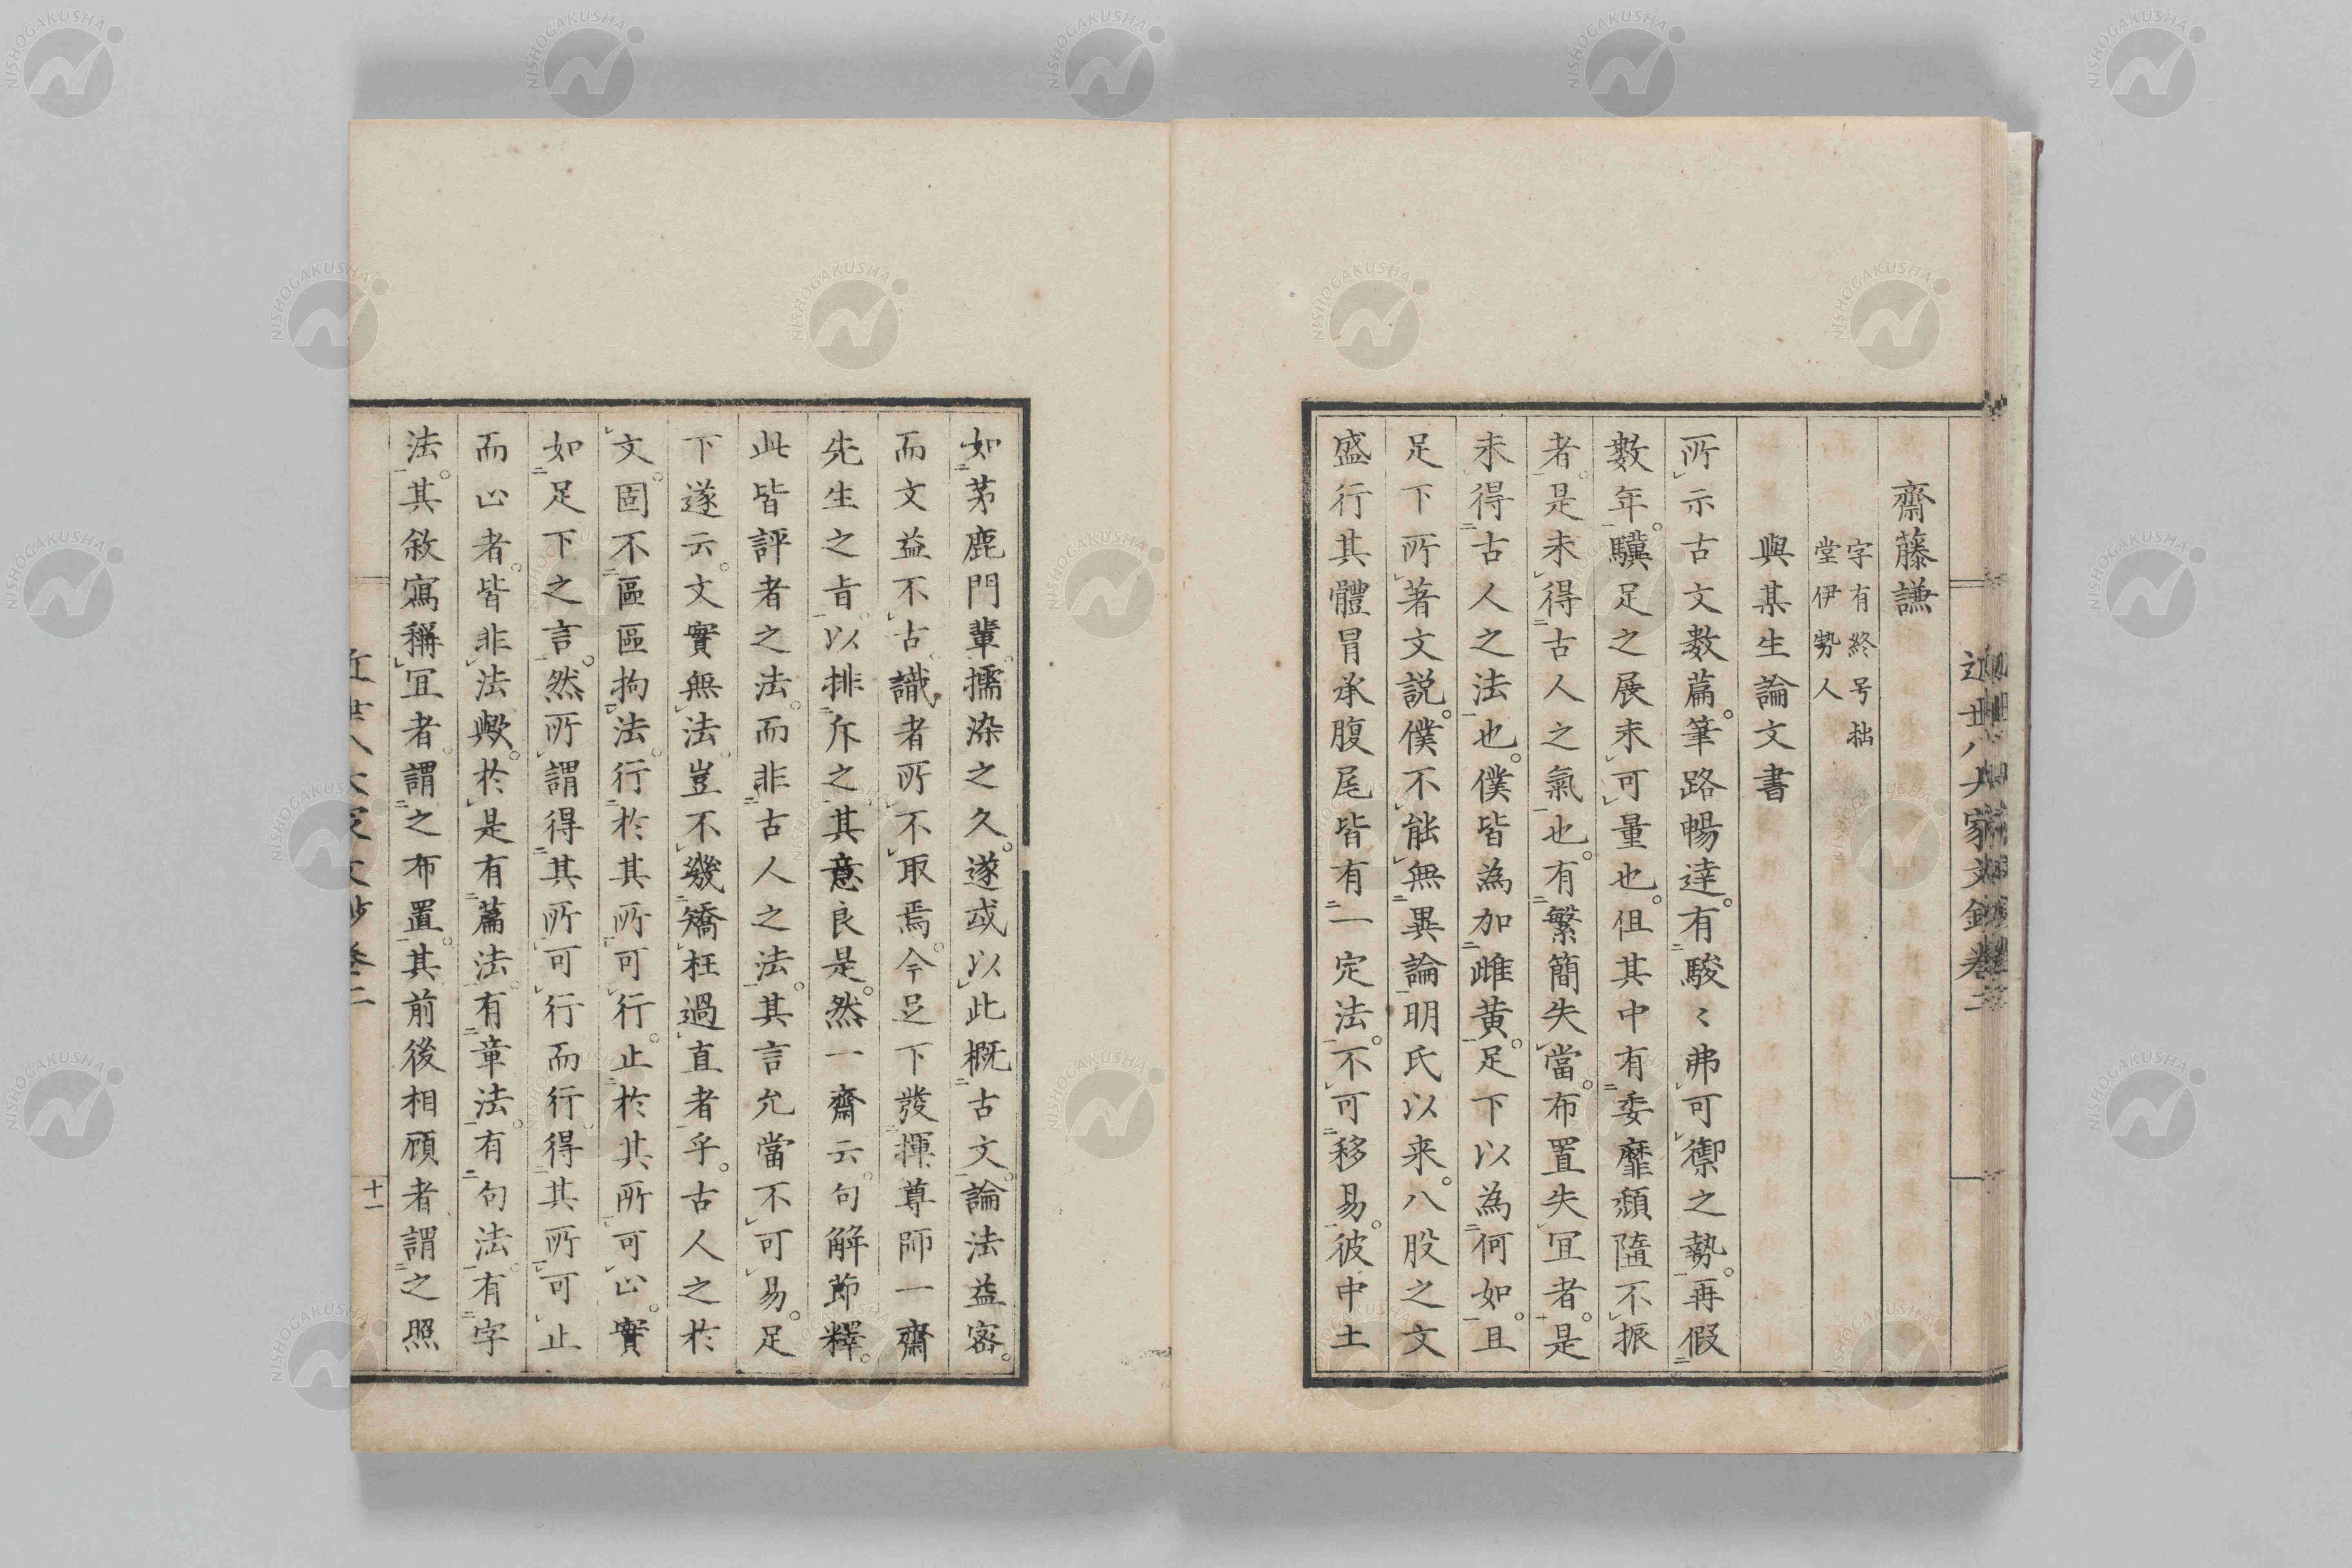 近世八大家文鈔卷二
齋藤謙
字有終号拙
堂伊勢人
與某生論文書
所示古文数篇。筆路暢達。有駿〻弗可禦之勢。再假
數年。驥足之展未可量也。但其中有委靡頽隨不振
者。是未得古人之氣也。有繁簡失當。布置失宜者。是
未得古人之法也。僕皆為加雌黄。足下以為何如。且
足下所著文説。僕不能無異論。明氏以来。八股之文
盛行其體冐承腹尾皆有一定法。不可移易。彼中土
如茅鹿門輩。擩染之久。遂或以此概古文。論法益密。
而文益不古。識者所不取焉。今足下發揮尊師一齋
先生之旨。以排斥之。其意良是。然一齋云。句解節釋。
此皆評者之法。而非古人之法。其言允當不可易。足
下遂云。文實無法。豈不幾矯枉過直者乎。古人之於
文。固不區區拘法。行於其所可行。止於其所可止。實
如足下之言。然所謂得其所可行而行得其所可止
而止者。皆非法歟。於是有篇法。有章法。有句法。有字
法。其敘寫稱宜者。謂之布置。其前後相頋者謂之照
近世八大家文鈔卷二
十一
NISHOGAKUSHA